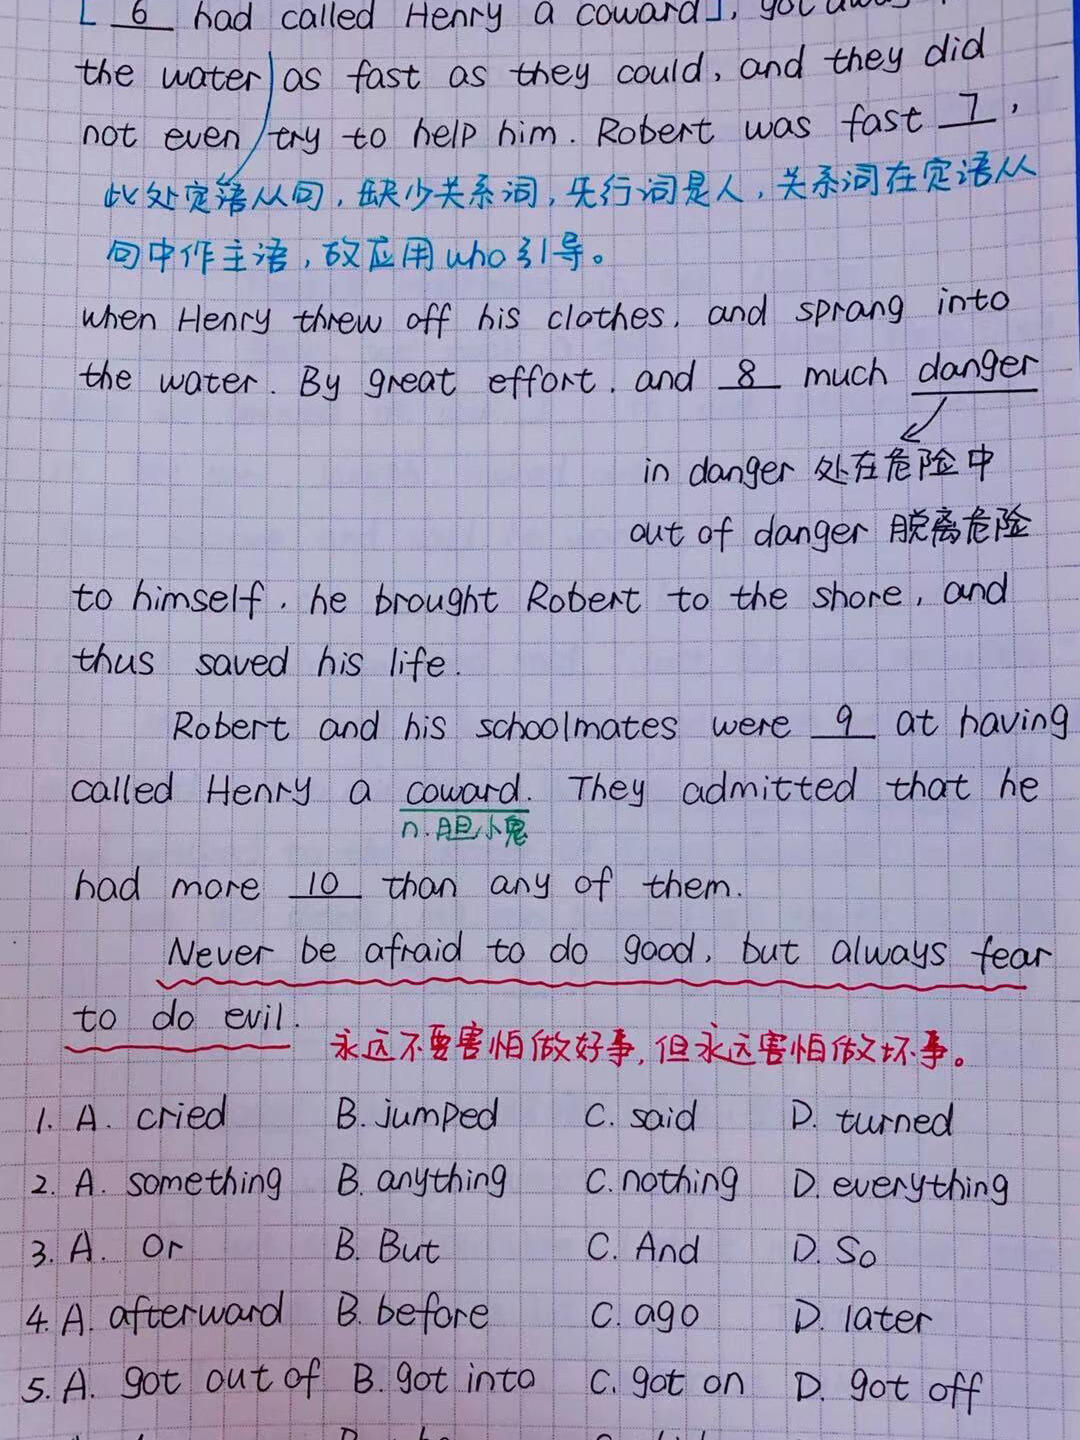 [ 6 had called Henry a coward], got
the water as fast as they could, and they did
not even try to help him. Robert was fast 7,
此处定语从句,缺少关系词,先行词是人,关系词在定语从
句中作主语,故应用who引导。
when Henry threw off his clothes, and sprang into
the water. By great effort, and 8 much danger
in danger 处在危险中
out of danger 脱离危险
to himself, he brought Robert to the shore, and
thus saved his life.
Robert and his schoolmates were 9 at having
called Henry a coward. They admitted that he
n.胆小鬼
had more 10 than any of them.
Never be afraid to do good, but always fear
to do evil.
永远不要害怕做好事,但永远害怕做坏事。
1. A. cried B. jumped C. said D. turned
2. A. something B. anything C. nothing D. everything
3. A. Or B. But C. And D. So
4. A. afterward B. before C. ago D. later
5. A. got out of B. got into C. got on D. got off